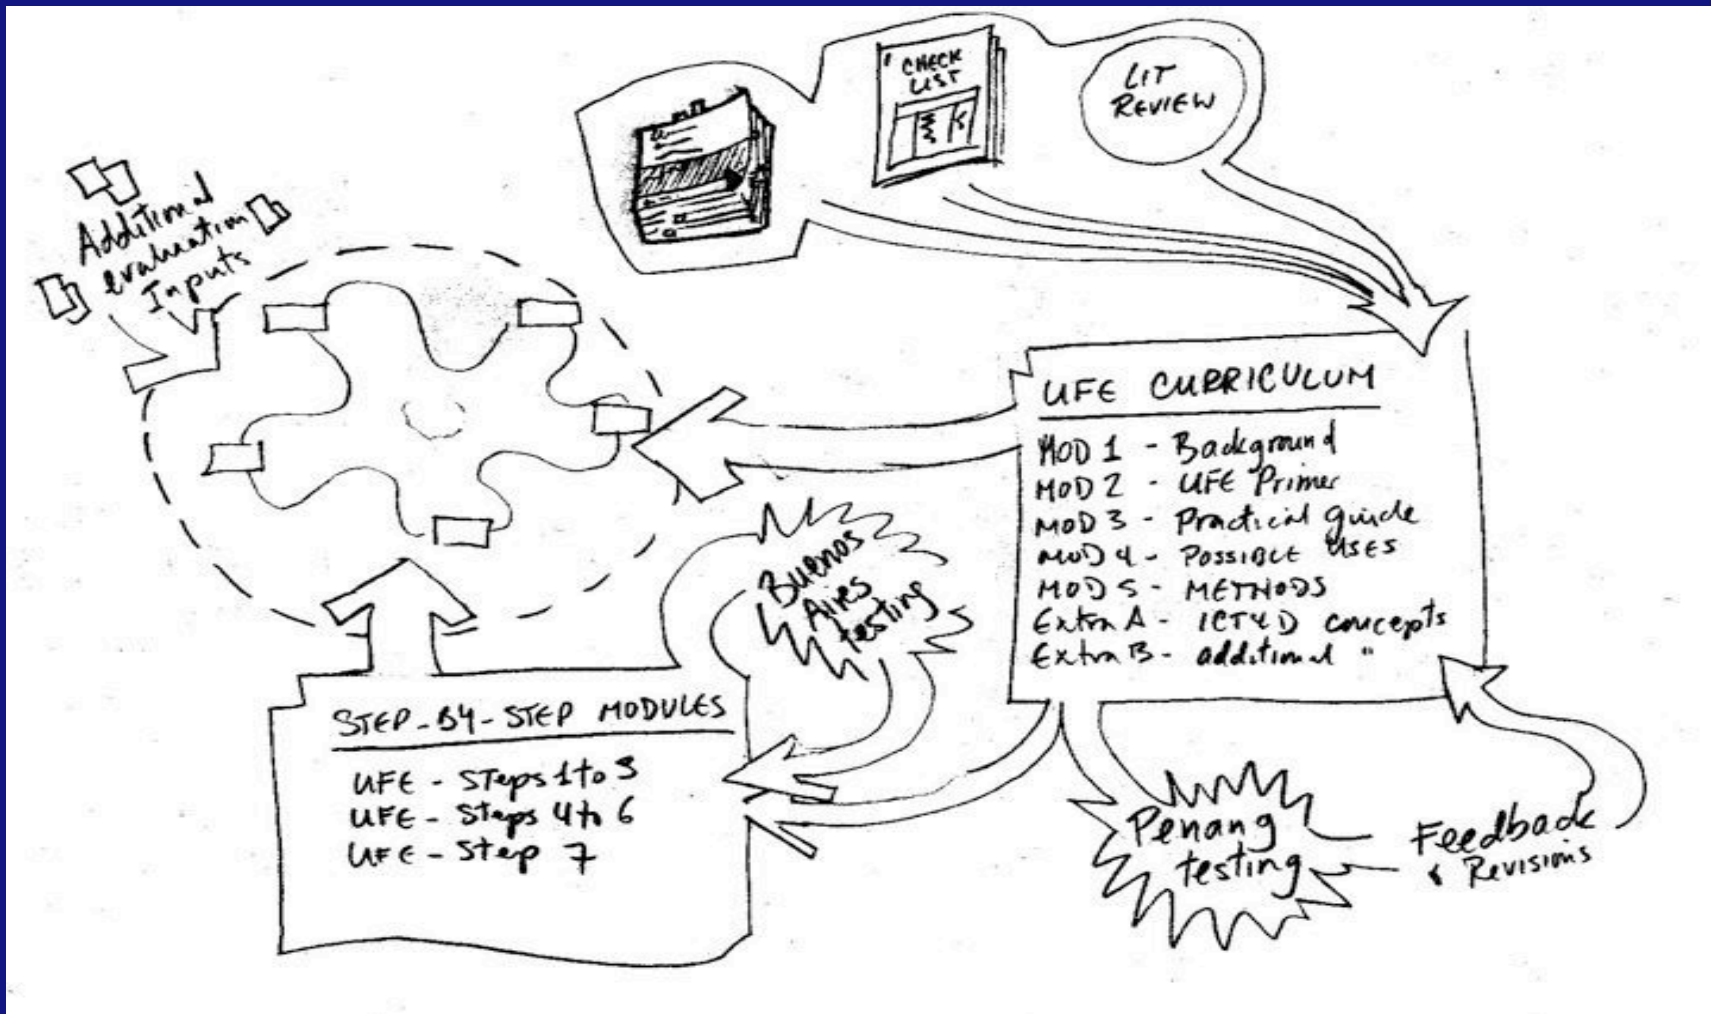 CHECK
LIST
LIT
REVIEW
Additional
evaluation
Inputs
UFE CURRICULUM
MOD 1 - Background
MOD 2 - UFE Primer
MOD 3 - Practical guide
MOD 4 - POSSIBLE USES
MOD 5 - METHODS
Extra A - ICT4D concepts
Extra B - additional "
Buenos
Aires
testing
STEP-BY-STEP MODULES
UFE - Steps 1 to 3
UFE - Steps 4 to 6
UFE - Step 7
Penang
testing
Feedback
& Revisions